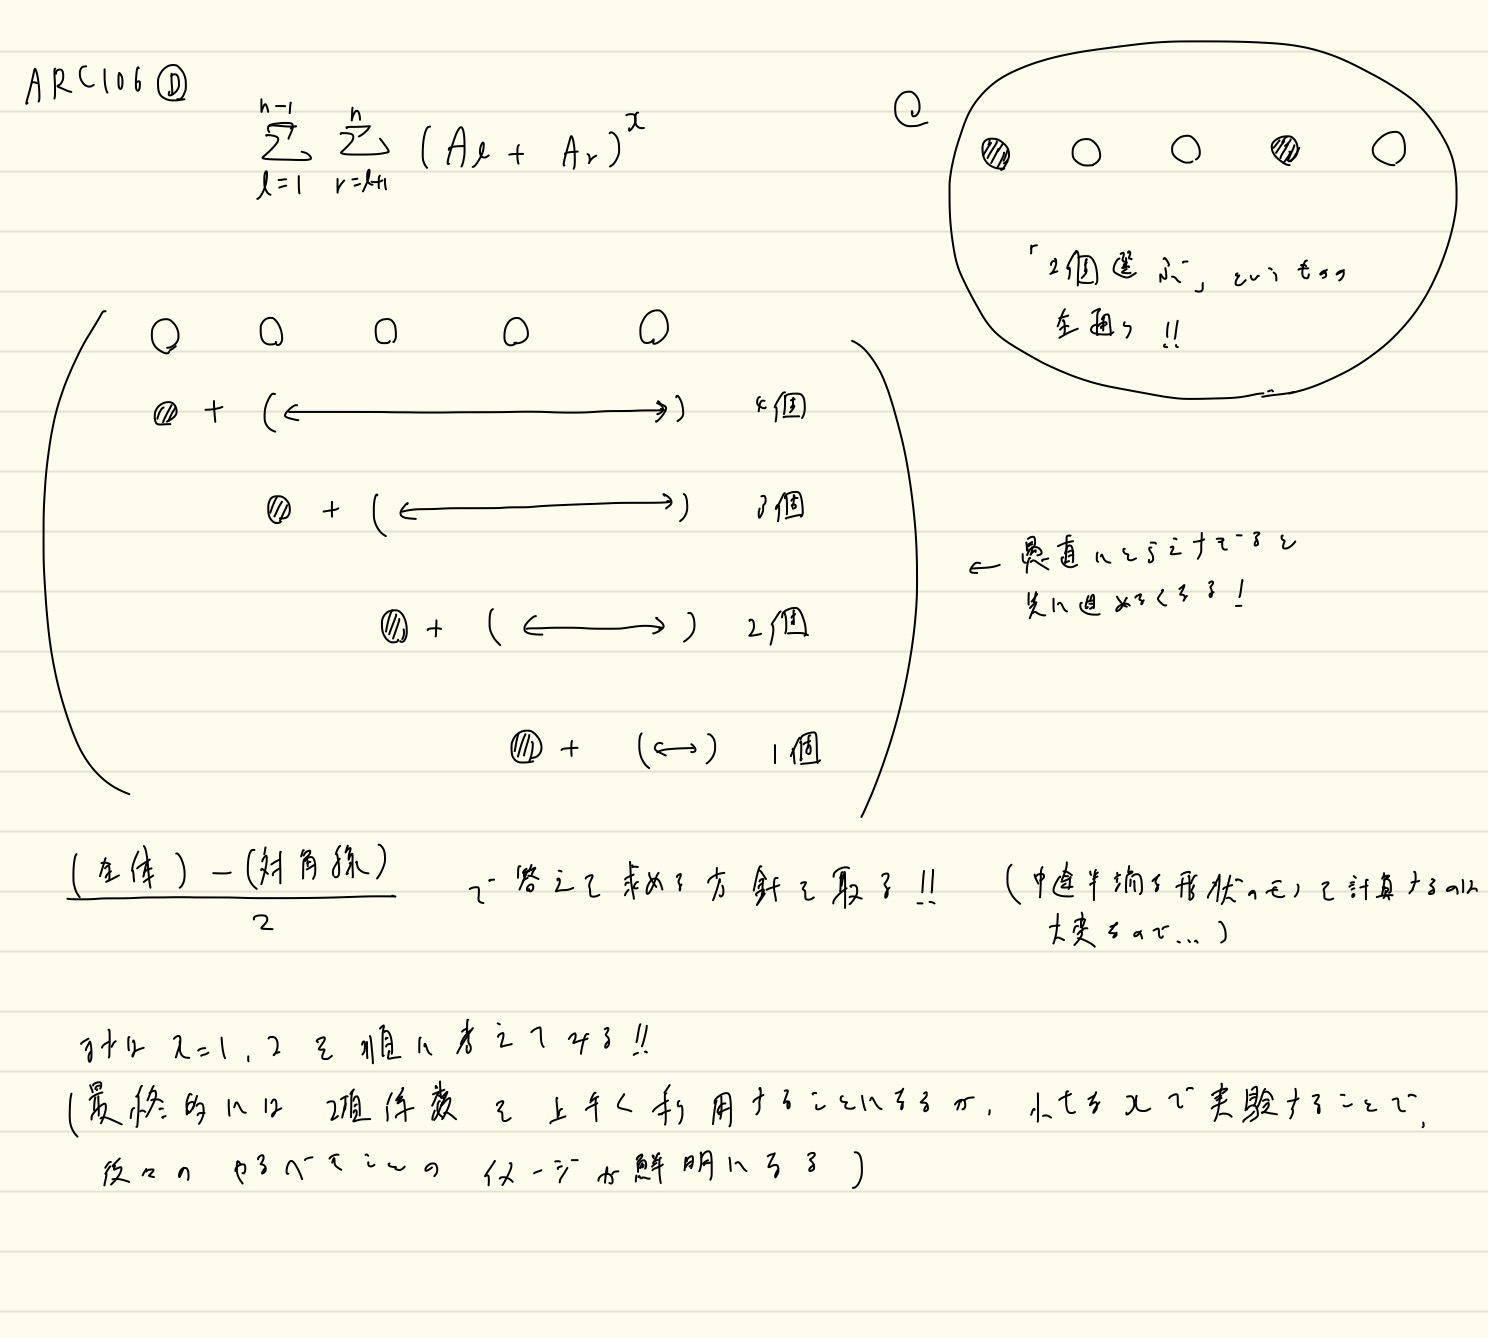 ARC106 Ⓓ
\sum_{l=1}^{n-1} \sum_{r=l+1}^{n} (A_l + A_r)^x
「2個選ぶ」というものの
全通り!!
+ ( ) 4個
+ ( ) 3個
+ ( ) 2個
+ ( ) 1個
← 愚直にとらえすぎると
先に進めなくなる!
(全体) - (対角線) / 2 で答えを求める方針を取る!! (中途半端な形状のモノを計算するのは
大変なので...)
まずは x=1, 2 を順に考えてみる!!
(最終的には 2項係数を上手く利用することになるが、小さな x で実験することで、
後々のやるべきことのイメージが鮮明になる)